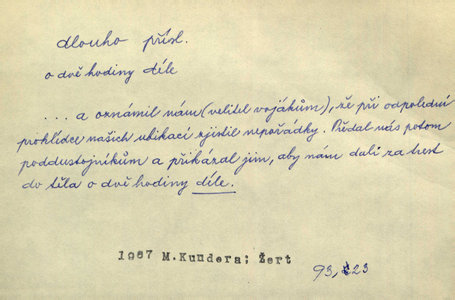 dlouho přísl.
o dvě hodiny déle
... a oznámil nám (velitel vojákům), že při odpolední
prohlídce našich ubikací zjistil nepořádky. Předal nás potom
poddůstojníkům a přikázal jim, aby nám dali za trest
do těla o dvě hodiny déle.
1967 M.Kundera; Žert
93, 123